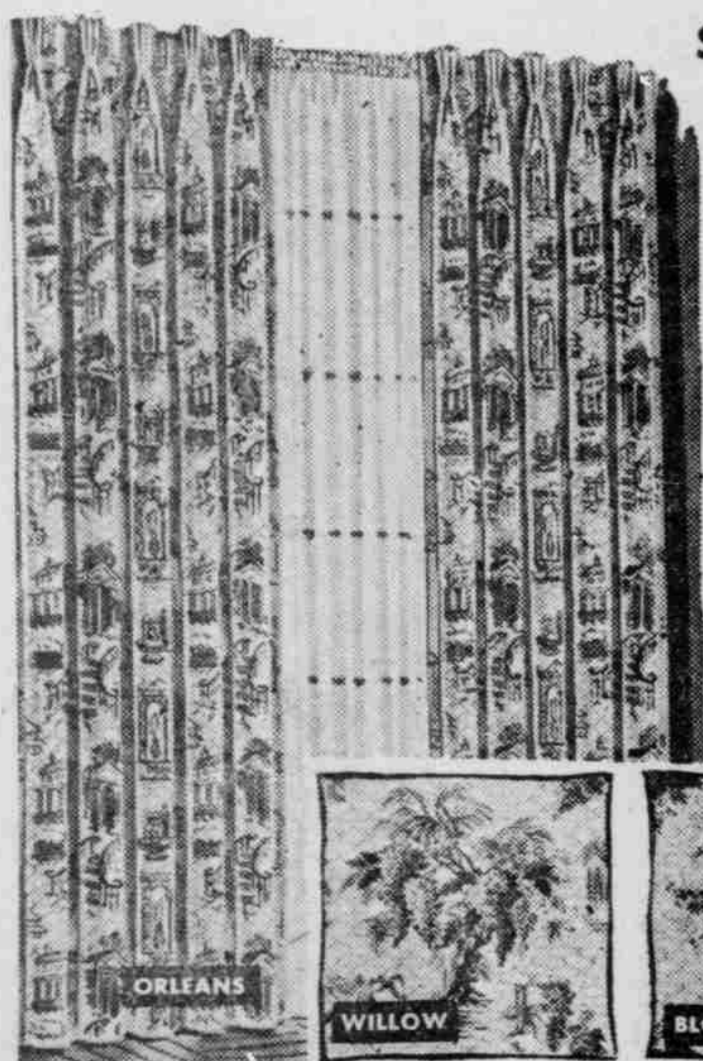 ORLEANS
WILLOW